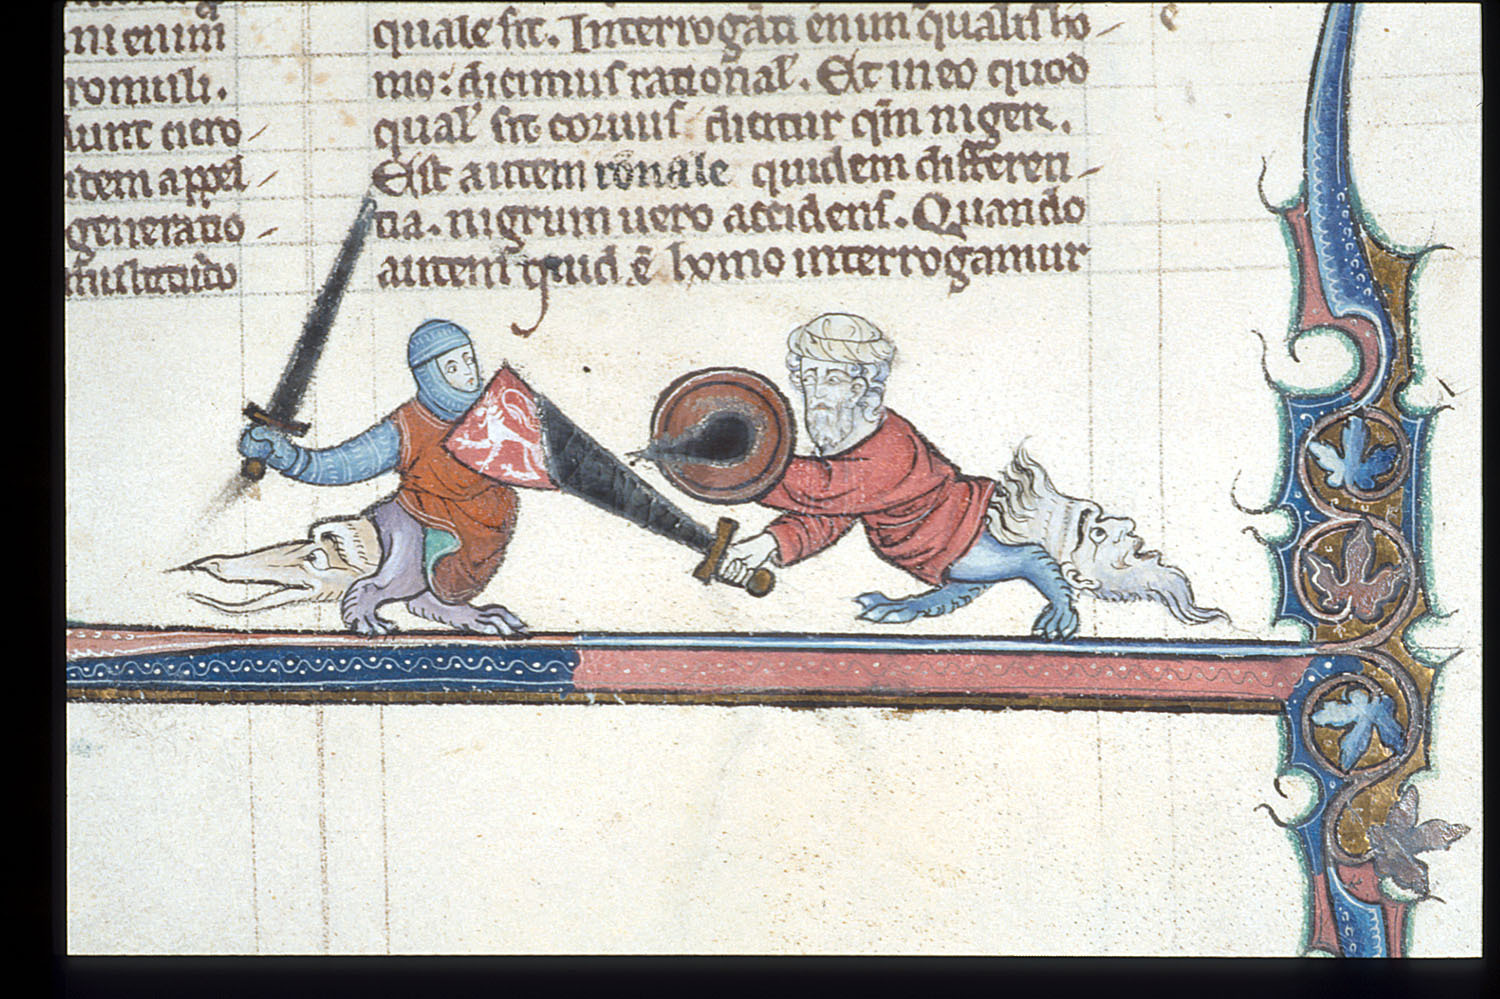 ni enim
romuli.
generatio -
quale sit. Interrogati enim qualis ho-
mo: dicimus rational'. Et in eo quod
qual' sit coruus dicitur qm̄ niger.
Est autem rōnale quidem differen-
tia. nigrum uero accidens. Quando
autem quid ē homo interrogamur